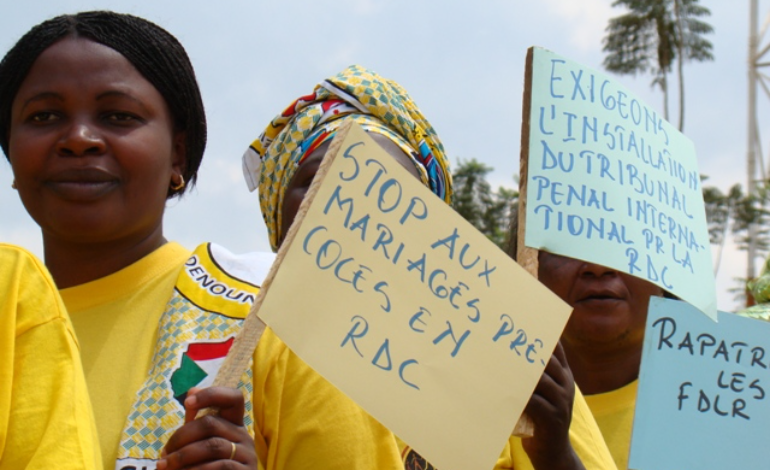 STOP AUX
MARIAGES PRÉ-
COCES EN
RDC
EXIGEONS
L'INSTALLATION
DU TRIBUNAL
PENAL INTERNA-
TIONAL PR LA
RDC
LES
FDLR